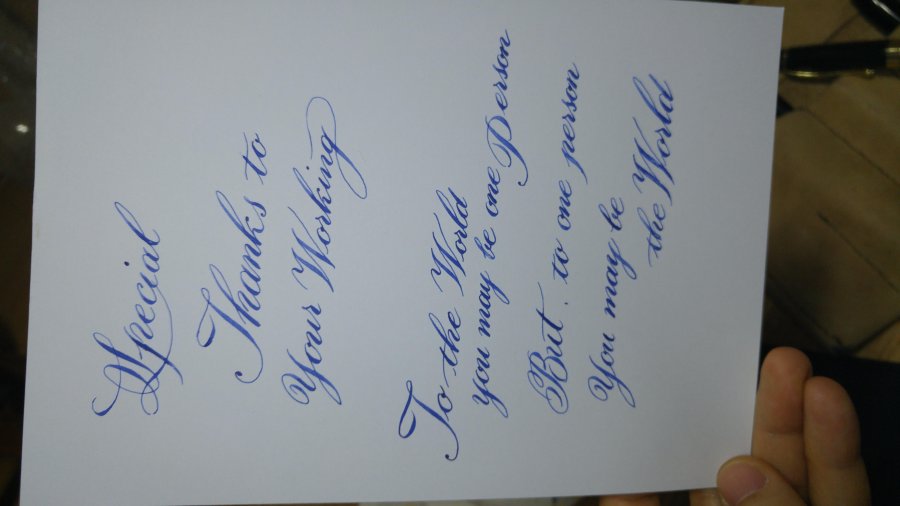 Special
Thanks to
Your Working
To the World
you may be one Person
But. to one person
You may be
the World